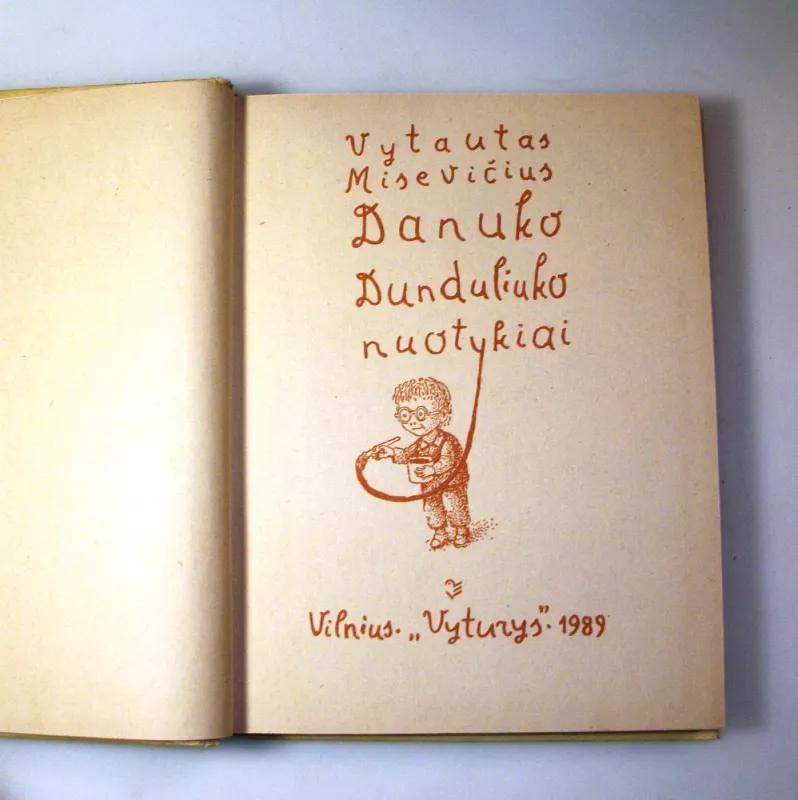 Vytautas
Misevičius
Danuko
Dunduliuko
nuotykiai
Vilnius. „Vyturys". 1989